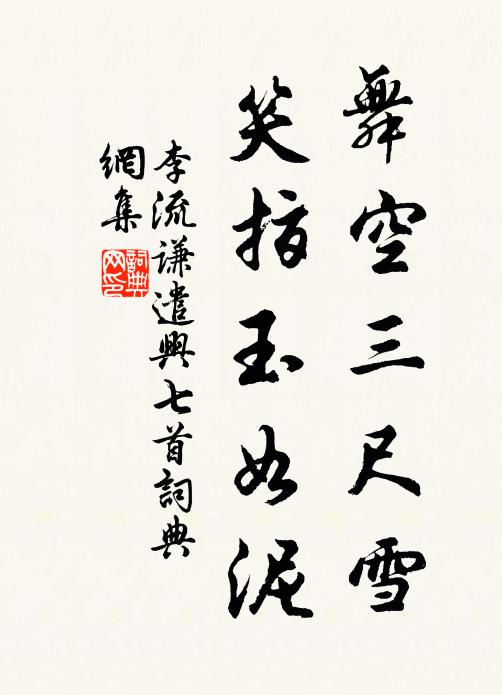 舞空三尺雪
笑指玉如泥
李流谦遣興七首詞典
網集
詞典
网印